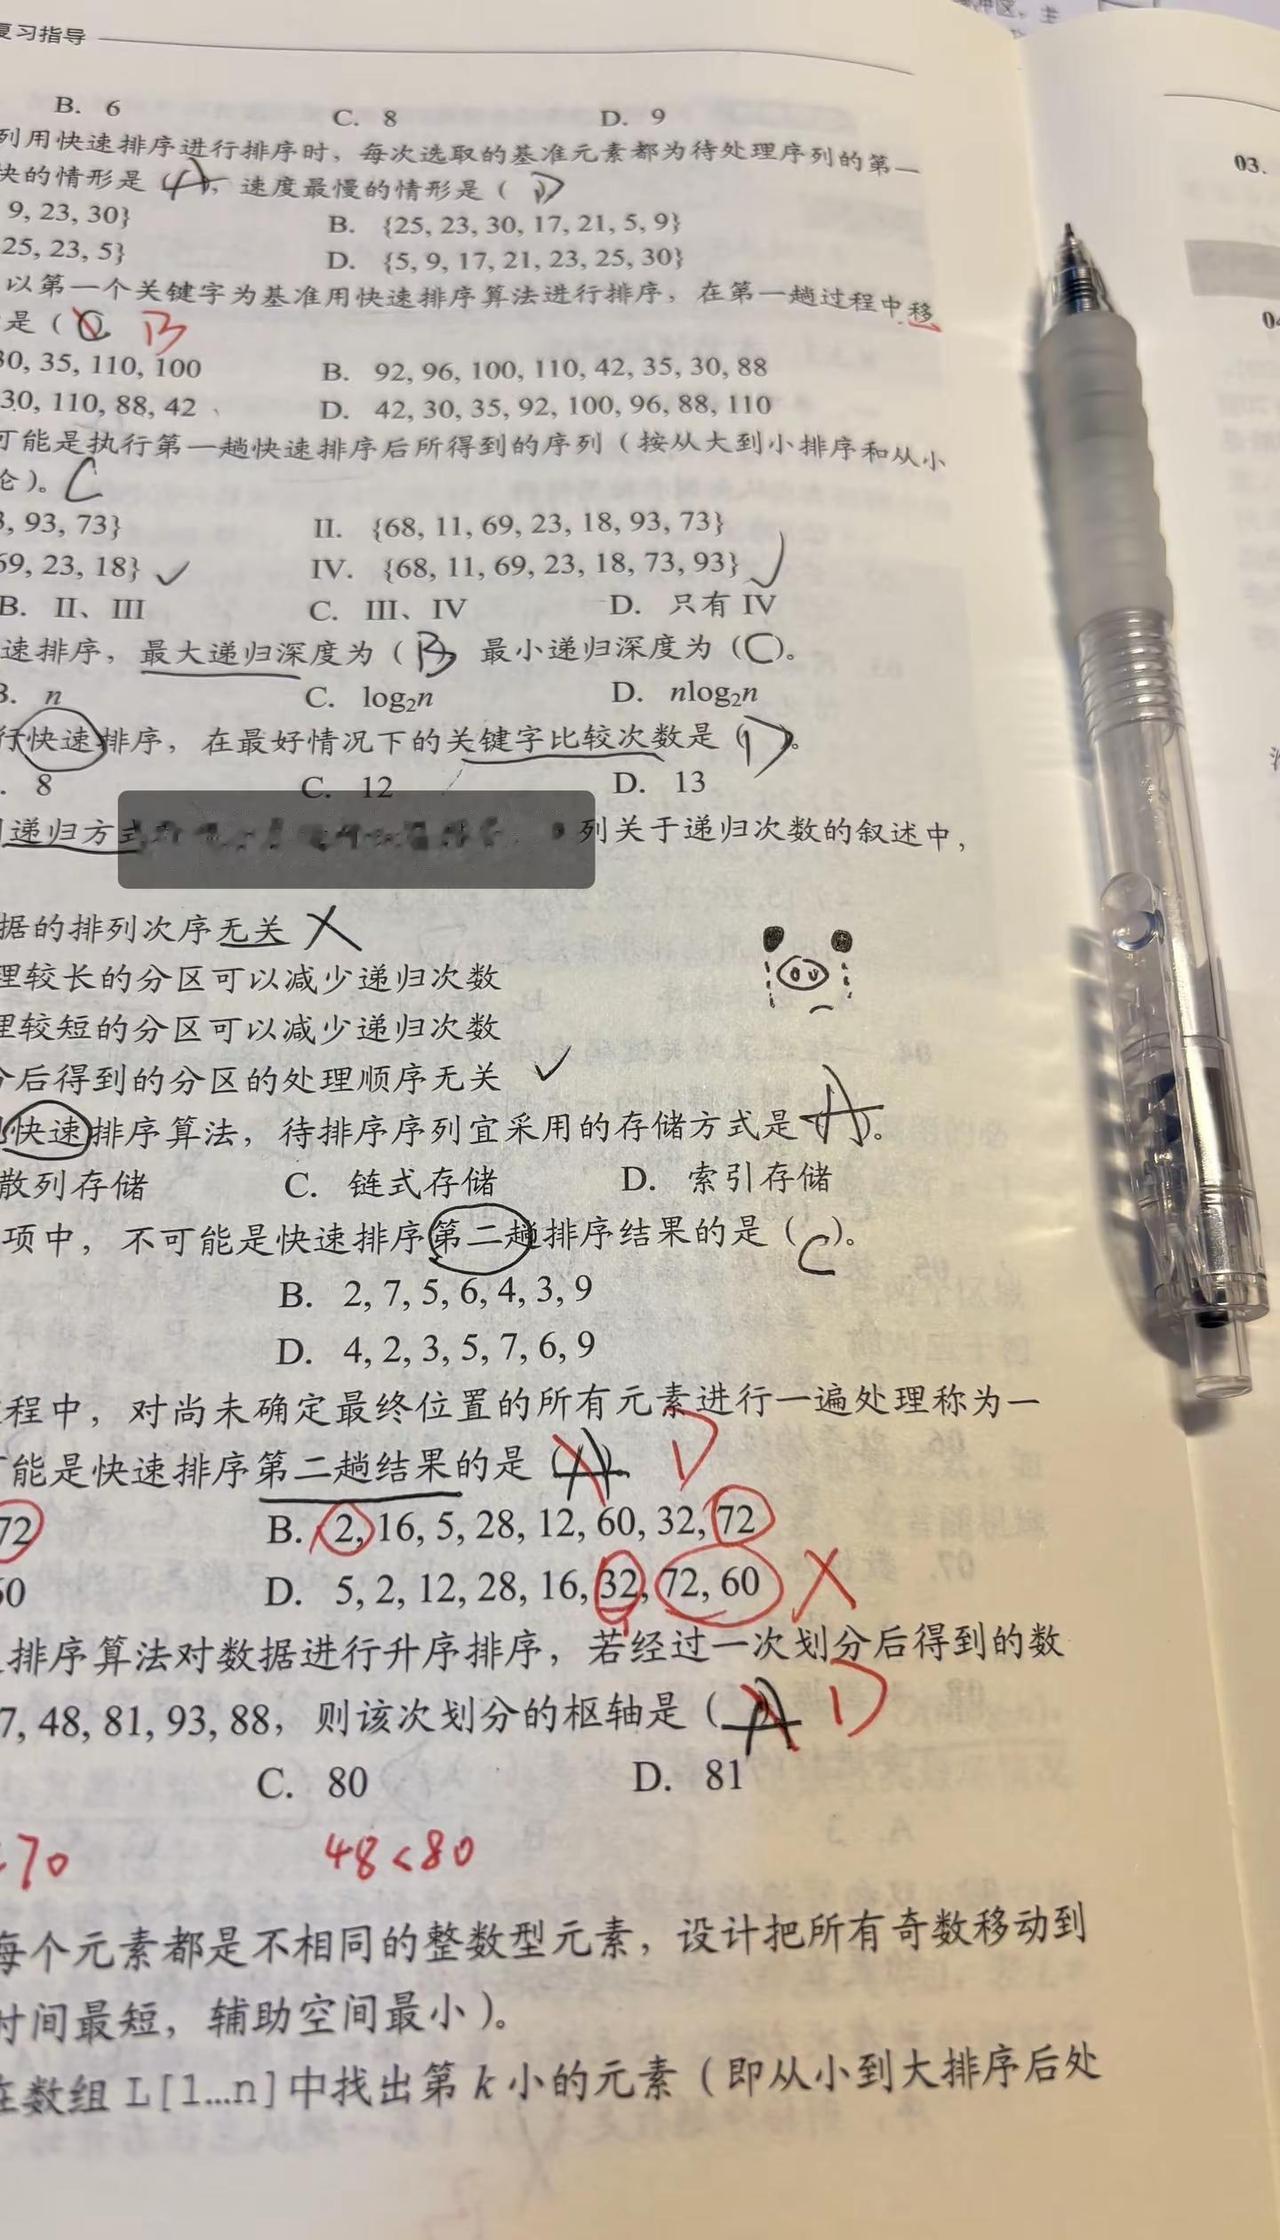 复习指导
B. 6 C. 8 D. 9
列用快速排序进行排序时，每次选取的基准元素都为待处理序列的第一
快的情形是（A），速度最慢的情形是（D）
9, 23, 30} B. {25, 23, 30, 17, 21, 5, 9}
25, 23, 5} D. {5, 9, 17, 21, 23, 25, 30}
以第一个关键字为基准用快速排序算法进行排序，在第一趟过程中移
是（C B
30, 35, 110, 100 B. 92, 96, 100, 110, 42, 35, 30, 88
30, 110, 88, 42 D. 42, 30, 35, 92, 100, 96, 88, 110
可能是执行第一趟快速排序后所得到的序列（按从大到小排序和从小
论）。C
, 93, 73} II. {68, 11, 69, 23, 18, 93, 73}
69, 23, 18} ✓ IV. {68, 11, 69, 23, 18, 73, 93} ✓
B. II、III C. III、IV D. 只有 IV
速排序，最大递归深度为（B 最小递归深度为（C）。
B. n C. log₂n D. nlog₂n
行快速排序，在最好情况下的关键字比较次数是（D）。
. 8 C. 12 D. 13
递归方式 列关于递归次数的叙述中，
据的排列次序无关 X
理较长的分区可以减少递归次数
理较短的分区可以减少递归次数
分后得到的分区的处理顺序无关 ✓
快速排序算法，待排序序列宜采用的存储方式是A。
散列存储 C. 链式存储 D. 索引存储
项中，不可能是快速排序第二趟排序结果的是（C）。
B. 2, 7, 5, 6, 4, 3, 9
D. 4, 2, 3, 5, 7, 6, 9
程中，对尚未确定最终位置的所有元素进行一遍处理称为一
能是快速排序第二趟结果的是（A） D
72 B. 2, 16, 5, 28, 12, 60, 32, 72
60 D. 5, 2, 12, 28, 16, 32, 72, 60 X
排序算法对数据进行升序排序，若经过一次划分后得到的数
7, 48, 81, 93, 88，则该次划分的枢轴是（A D
C. 80 D. 81
70 48<80
每个元素都是不相同的整数型元素，设计把所有奇数移动到
时间最短，辅助空间最小）。
在数组 L[1…n]中找出第 k 小的元素（即从小到大排序后处
03.